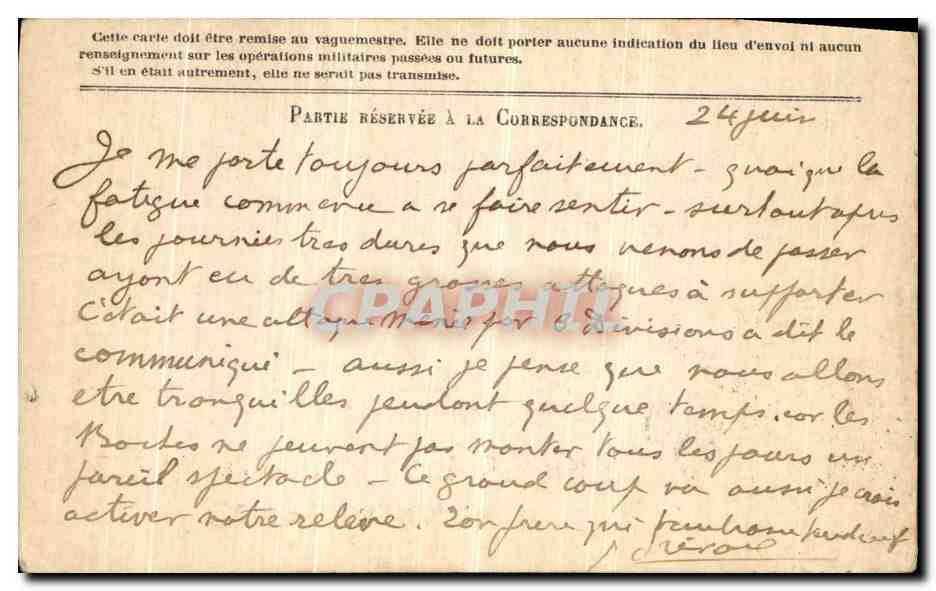 Cette carte doit être remise au vaguemestre. Elle ne doit porter aucune indication du lieu d'envoi ni aucun
renseignement sur les opérations militaires passées ou futures.
S'il en était autrement, elle ne serait pas transmise.
PARTIE RÉSERVÉE À LA CORRESPONDANCE. 24 juin
Je me porte toujours parfaitement - quoique la
fatigue commence a se faire sentir - surtout apres
les journées tres dures que nous venons de passer
ayant eu de tres grosses attaques à supporter
C'était une attaque menée par 6 Divisions a dit le
communiqué - aussi je pense que nous allons
etre tranquilles pendant quelque temps. car les
Boches ne peuvent pas monter tous les jours un
pareil spectacle - Ce grand coup va aussi je crois
activer notre relève. Ton frere qui
CPAPHIL